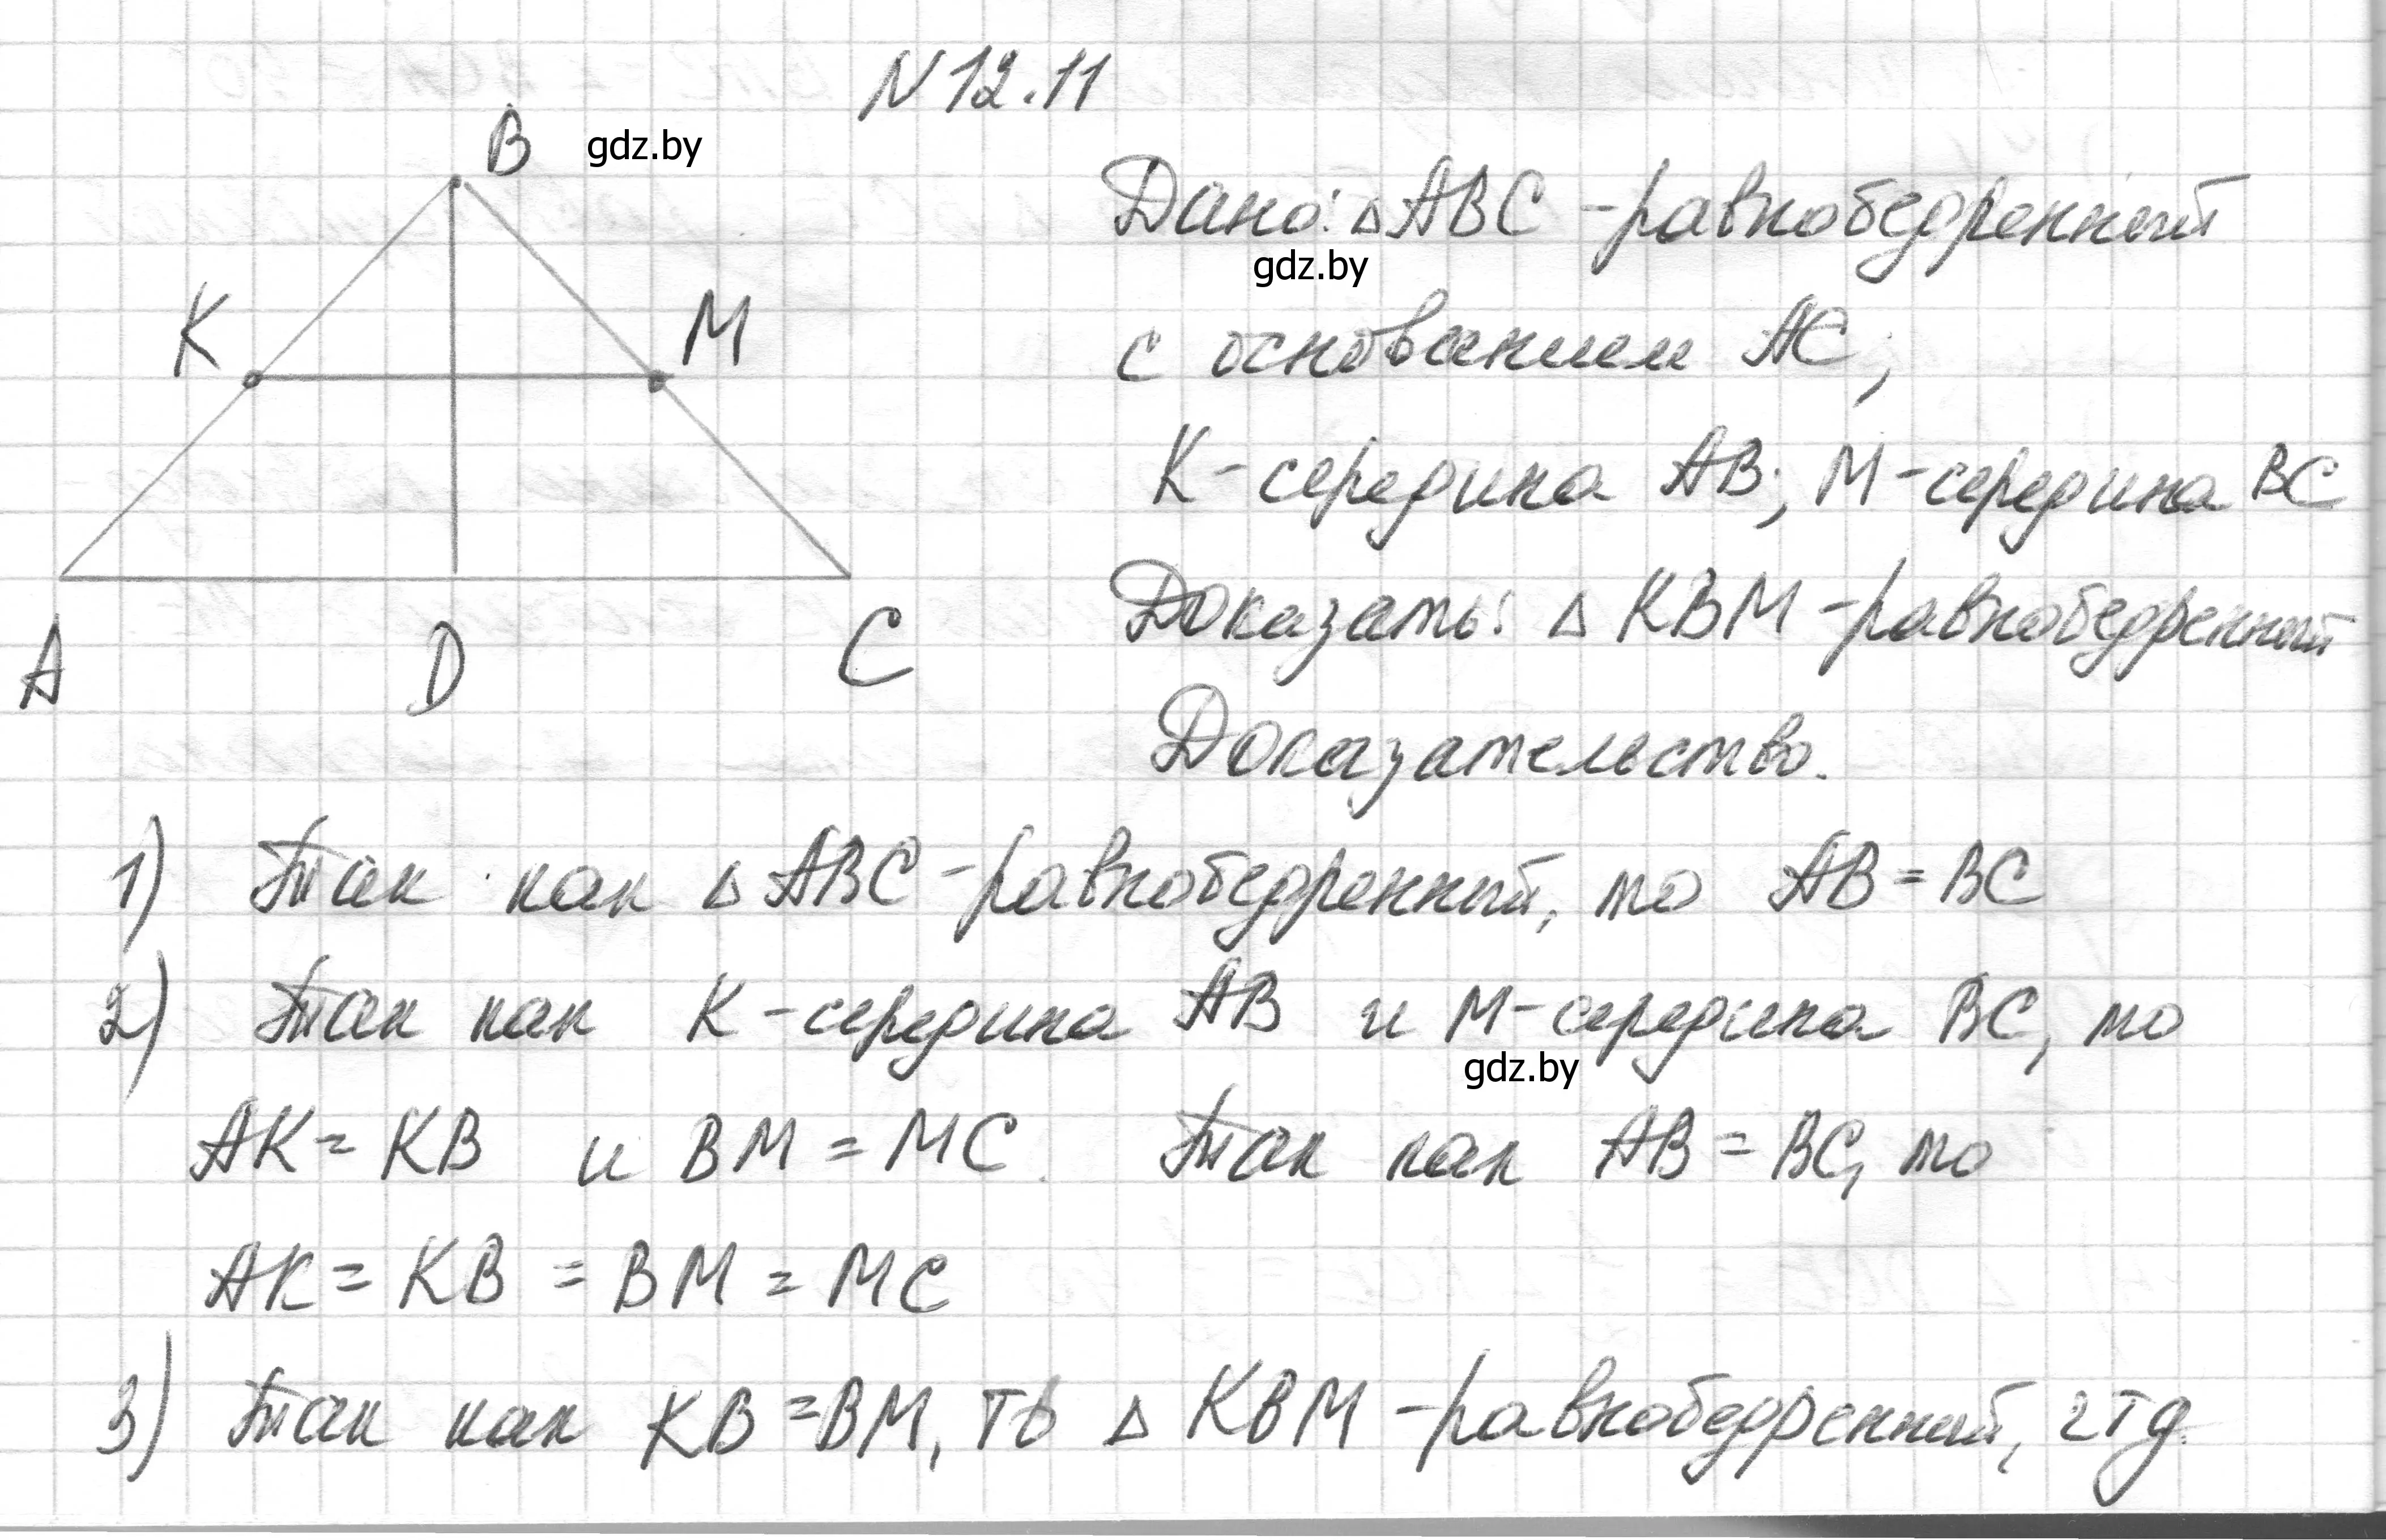 N 12.11
B
gdz.by
Дано: △ABC - равнобедренный
gdz.by
K
M
с основанием AC;
K - середина AB; M - середина BC
Доказать: △ KBM - равнобедренный
A
D
C
Доказательство.
1) Так как △ABC - равнобедренный, то AB = BC
2) Так как K - середина AB и M - середина BC, то
gdz.by
AK = KB и BM = MC. Так как AB = BC, то
AK = KB = BM = MC
3) Так как KB = BM, то △ KBM - равнобедренный, чтд.